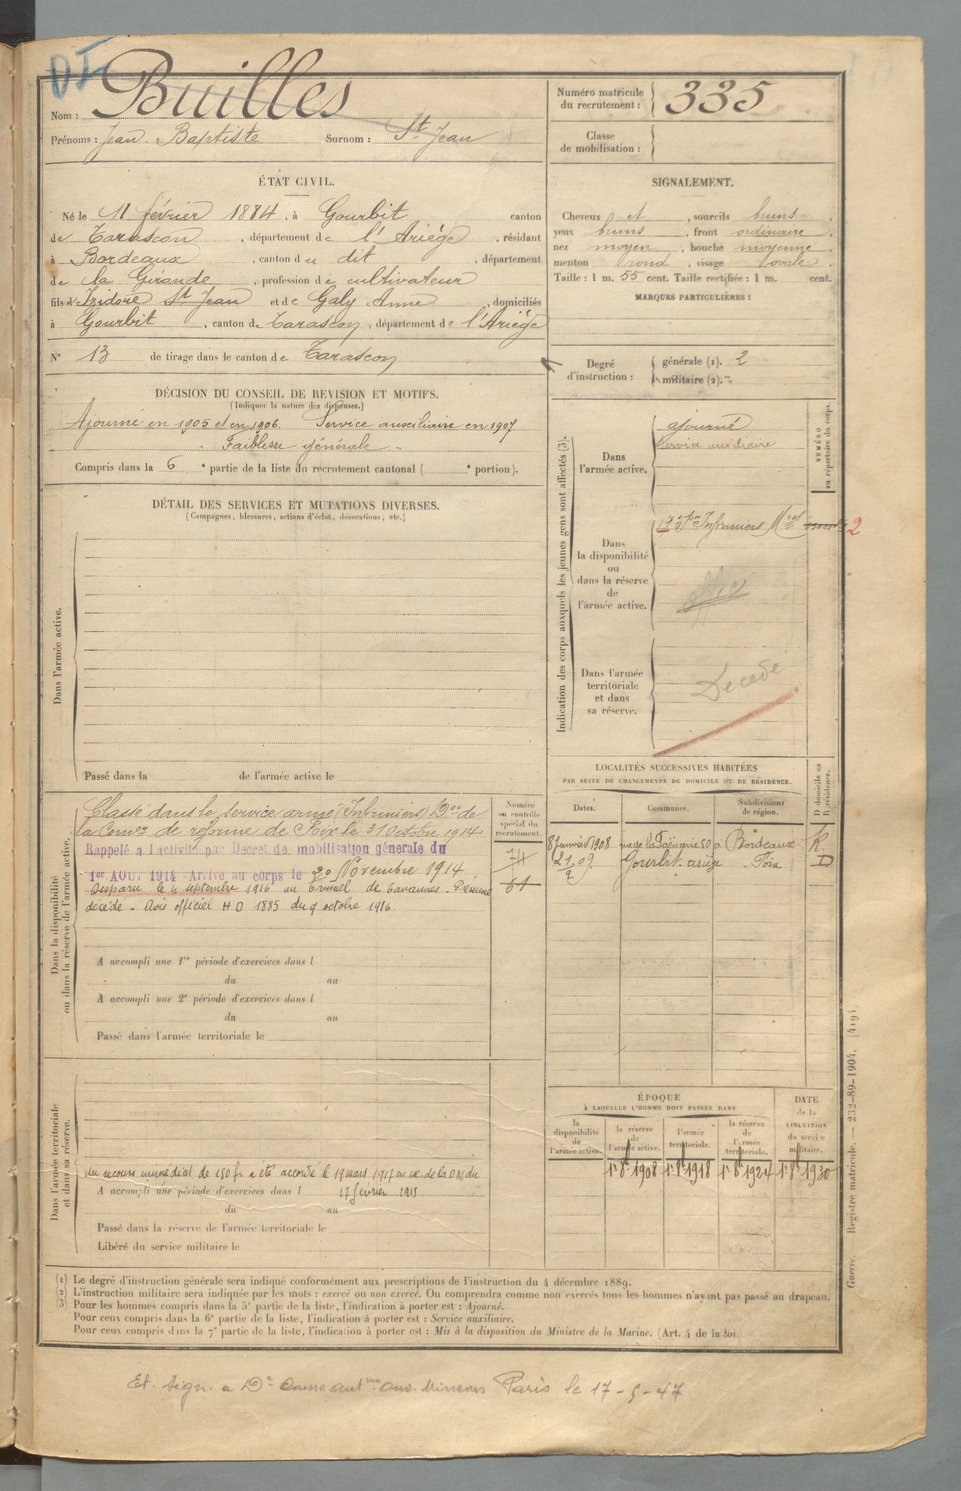 Nom : Builles
Prénoms : Jean Baptiste Surnom : St Jean
ÉTAT CIVIL.
Né le 11 février 1884, à Gourbit canton
de Tarascon, département de l'Ariège, résidant
à Bordeaux, canton du dit, département
de la Gironde, profession de cultivateur
fils d'Izidore St Jean et de Galy Anne, domiciliés
à Gourbit, canton de Tarascon, département de l'Ariège
N° 13 de tirage dans le canton de Tarascon
DÉCISION DU CONSEIL DE REVISION ET MOTIFS.
(Indiquer la nature des dispenses.)
Ajourné en 1905 et en 1906. Service auxiliaire en 1907
Faiblesse générale
Compris dans la 6e partie de la liste du recrutement cantonal ( e portion).
DÉTAIL DES SERVICES ET MUTATIONS DIVERSES.
(Campagnes, blessures, actions d'éclat, décorations, etc.)
Dans l'armée active.
Passé dans la de l'armée active le
Dans la disponibilité
ou dans la réserve de l'armée active.
Classé dans le service armé (Infirmiers) Don de
la Comon de réforme de Foix le 31 Octobre 1914
Rappelé à l'activité par Décret de mobilisation générale du
1er AOUT 1914 Arrivé au corps le 20 Novembre 1914
Disparu le 4 septembre 1916 au tunnel de Tavannes - Présumé
décédé - Avis officiel HD 1885 du 9 octobre 1916.
A accompli une 1re période d'exercices dans l
du au
A accompli une 2e période d'exercices dans l
du au
Passé dans l'armée territoriale le
Numéro
au contrôle
spécial du
recrutement.
61
Dans l'armée territoriale
et dans sa réserve.
Un secours immédiat de 150 fr a été accordé le 19 mars 1917 au de la D.M. du
A accompli une période d'exercices dans l 17 février 1915
du au
Passé dans la réserve de l'armée territoriale le
Libéré du service militaire le
Numéro matricule
du recrutement : 335
Classe
de mobilisation :
SIGNALEMENT.
Cheveux et, sourcils bruns.
yeux bruns, front ordinaire,
nez moyen, bouche moyenne,
menton rond, visage ovale.
Taille : 1 m. 55 cent. Taille rectifiée : 1 m. cent.
MARQUES PARTICULIÈRES :
Degré
d'instruction :
générale (1). 2
militaire (2).
Indication des corps auxquels les jeunes gens sont affectés (3).
NUMÉRO
au répertoire du corps.
Dans
l'armée active.
ajourné
Service auxiliaire
Dans
la disponibilité
ou
dans la réserve
de
l'armée active.
Infirmiers
2
Dans l'armée
territoriale
et dans
sa réserve.
Décédé
LOCALITÉS SUCCESSIVES HABITÉES
PAR SUITE DE CHANGEMENTS DE DOMICILE OU DE RÉSIDENCE.
D domicile ou
R résidence.
Dates. Communes. Subdivisions
de région.
8 Janvier 1908 rue de la 50 à Bordeaux R.
Gourbit Foix D
ÉPOQUE
À LAQUELLE L'HOMME DOIT PASSER DANS
la
disponibilité
de
l'armée active.
la réserve
de
l'armée active.
l'armée
territoriale.
la réserve
de
l'armée
territoriale.
DATE
de la
LIBÉRATION
du service
militaire.
1r 8b 1908 1r 8b 1918 1r 8b 1924 1r 8b 1930
Guerre. Registre matricule. — 232-89-1904. [419]
(1) Le degré d'instruction générale sera indiqué conformément aux prescriptions de l'instruction du 4 décembre 1889.
(2) L'instruction militaire sera indiquée par les mots : exercé ou non exercé. On comprendra comme non exercés tous les hommes n'ayant pas passé au drapeau.
(3) Pour les hommes compris dans la 5e partie de la liste, l'indication à porter est : Ajourné.
Pour ceux compris dans la 6e partie de la liste, l'indication à porter est : Service auxiliaire.
Pour ceux compris dans la 7e partie de la liste, l'indication à porter est : Mis à la disposition du Ministre de la Marine. (Art. 4 de la loi.
Paris le 17-5-47